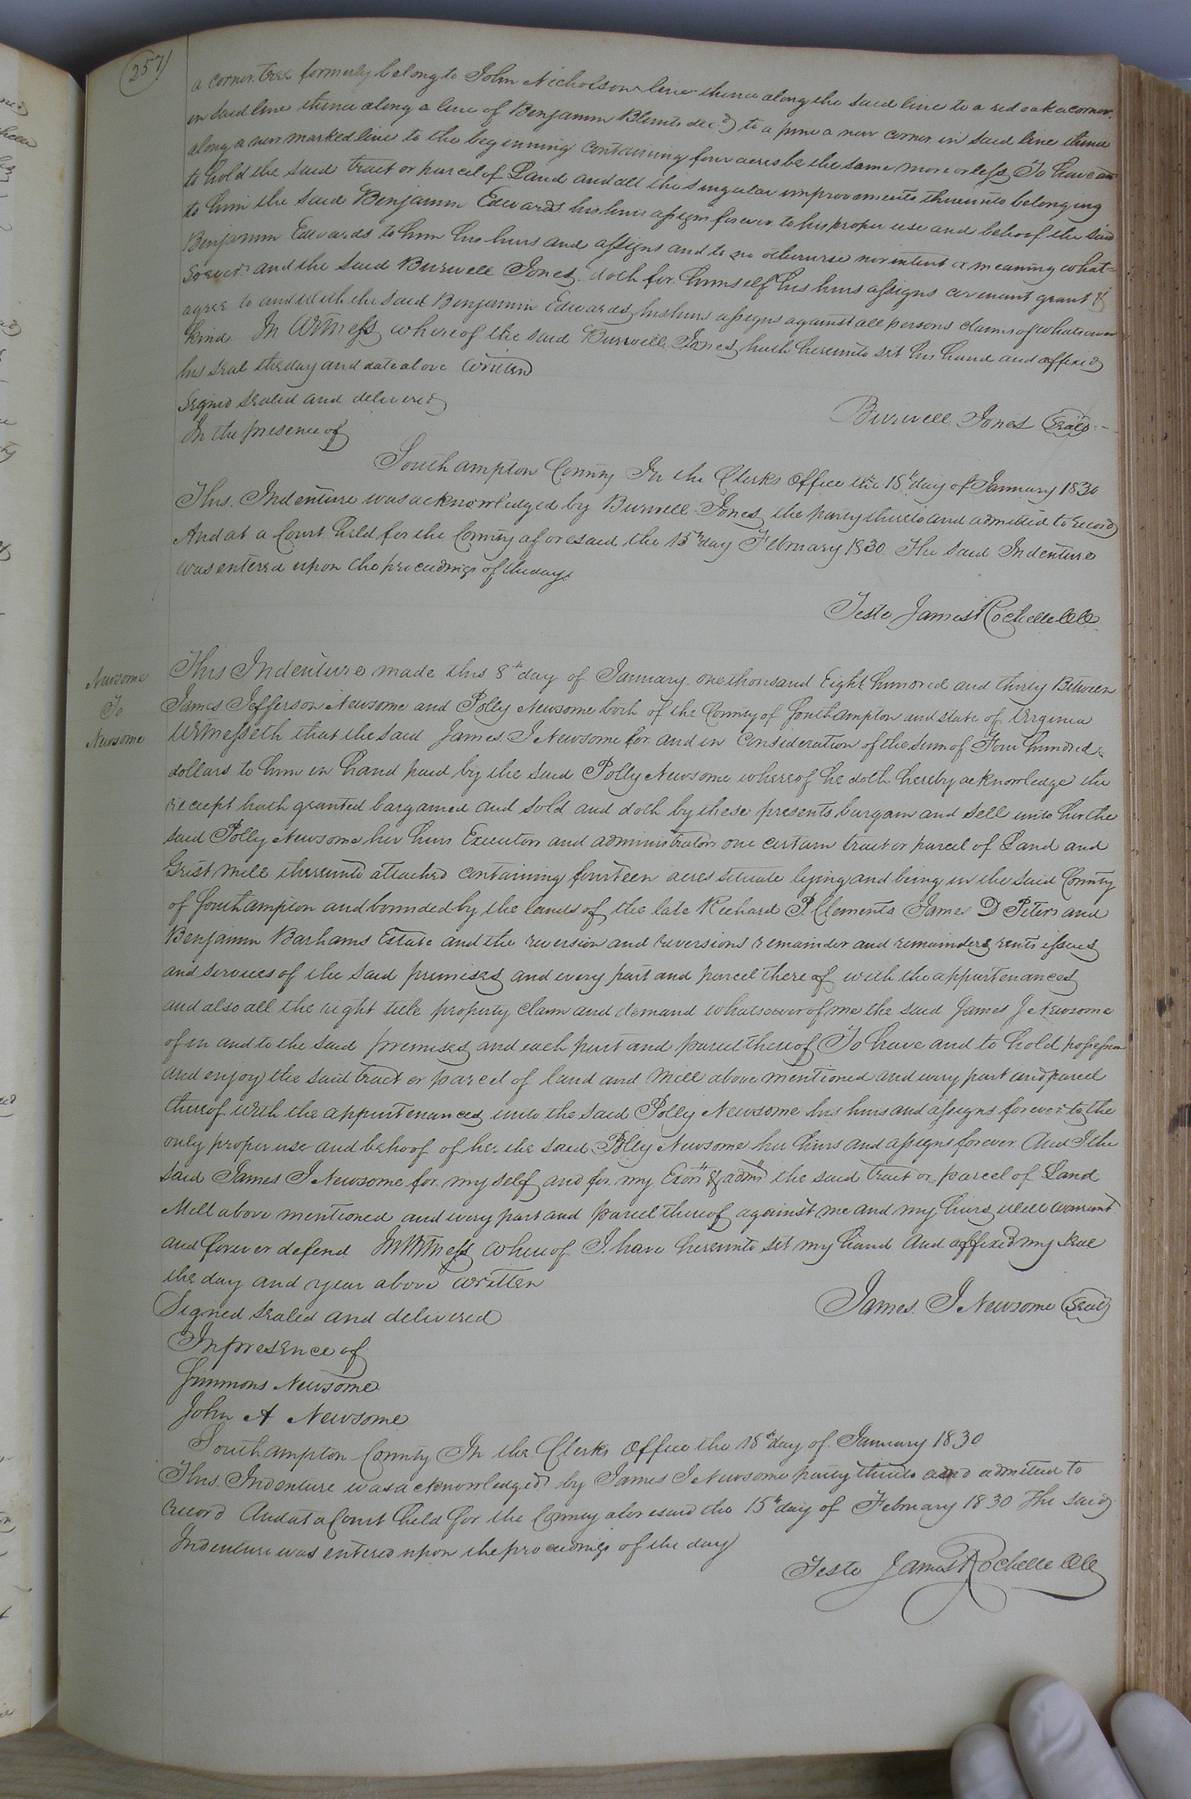 257
a corner tree formerly belong to John Nicholson line thence along the said line to a red oak a corner
in said line thence along a line of Benjamin Blunts decd to a pine a new corner in said line thence
along a new marked line to the beginning containing four acres be the same more or less To have and
to hold the said tract or parcel of Land and all the singular improvements thereunto belonging
to him the said Benjamin Edwards his heirs assigns forever to his proper use and behoof the said
Benjamin Edwards to him his heirs and assigns and to no otherwise nor intent or meaning what=
soever and the said Burwell Jones doth for himself his heirs assigns covenant grant &
agree to and with the said Benjamin Edwards, his heirs assigns against all persons claims of whatsoever
kind In Witness whereof the said Burwell Jones hath hereunto set his hand and affixed
his seal the day and date above written
Signed sealed and delivered
In the presence of
Burwell Jones Seal
Southampton County In the Clerks Office the 18th day of January 1830
This Indenture was acknowledged by Burwell Jones the party thereto and admitted to record
And at a Court held for the County aforesaid the 15th day February 1830 The said Indenture
was entered upon the proceedings of the day
Teste James Rochelle CC
Newsome
To
Newsome
This Indenture made this 8th day of January one thousand Eight hundred and thirty Between
James Jefferson Newsome and Polly Newsome both of the County of Southampton and state of Virginia
Witnesseth that the said James J Newsome for and in consideration of the sum of Four hundred
dollars to him in hand paid by the said Polly Newsome whereof he doth hereby acknowledge the
receipt hath granted bargained and sold and doth by these presents bargain and sell unto her the
said Polly Newsome her heirs Executors and administrators one certain tract or parcel of Land and
Grist Mill thereunto attached containing fourteen acres situate lying and being in the said County
of Southampton and bounded by the lands of the late Richard P Clements James D Peters and
Benjamin Barhams Estate and the reversion and reversions remainder and remainders rents issues
and services of the said premises and every part and parcel there of with the appurtenances
and also all the right title property claim and demand whatsoever of me the said James J Newsome
of in and to the said premises and each part and parcel thereof To have and to hold possession
and enjoy the said tract or parcel of land and Mill above mentioned and every part and parcel
thereof with the appurtenances, unto the said Polly Newsome his heirs and assigns forever to the
only proper use and behoof of her the said Polly Newsome her heirs and assigns forever And I the
said James J Newsome for my self and for my Exors & admrs the said tract or parcel of Land
Mill above mentioned and every part and parcel thereof against me and my heirs will warrant
and forever defend In Witness whereof I have hereunto set my hand and affixed my seal
the day and year above written
Signed sealed and delivered
James. J Newsome Seal
In presence of
Simmons Newsome
John A Newsome
Southampton County In the Clerks office the 18th day of January 1830
This Indenture was acknowledged by James J Newsome party thereto and admitted to
record And at a Court held for the County aforesaid the 15th day of February 1830 The said
Indenture was entered upon the proceedings of the day
Teste James Rochelle CC